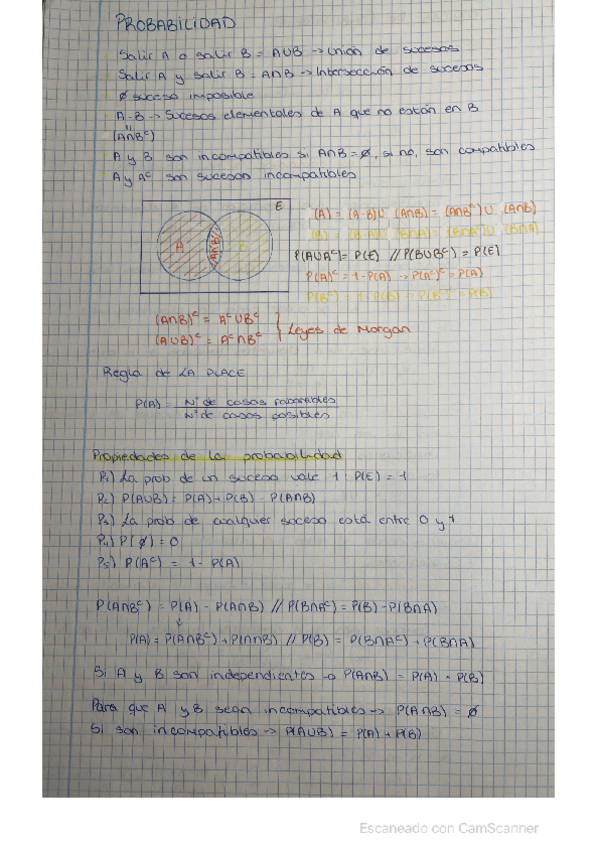 PROBABILIDAD
Salir A o salir B = A∪B → Unión de sucesos
Salir A y salir B = A∩B → Intersección de sucesos
∅ suceso imposible
A-B → Sucesos elementales de A que no están en B
(A∩Bᶜ)
A y B son incompatibles si A∩B=∅, si no, son compatibles
A y Aᶜ son sucesos incompatibles
E
A
A∩B
(A) = (A-B)∪ (A∩B) = (A∩Bᶜ)∪ (A∩B)
(B) = (B-A)∪ (B∩A) = (B∩Aᶜ)∪ (B∩A)
P(A∪Aᶜ)= P(E) // P(B∪Bᶜ) = P(E)
P(A)ᶜ = 1-P(A) → P(Aᶜ)ᶜ = P(A)
(A∩B)ᶜ = Aᶜ∪Bᶜ
(A∪B)ᶜ = Aᶜ∩Bᶜ
} Leyes de Morgan
Regla de LA PLACE
P(A) = Nº de casos favorables
Nº de casos posibles
Propiedades de la probabilidad
P₁) La prob de un suceso vale 1 : P(E) = 1
P₂) P(A∪B) = P(A)+P(B) - P(A∩B)
P₃) La prob de cualquier suceso está entre 0 y 1
P₄) P(∅) = 0
P₅) P(Aᶜ) = 1 - P(A)
P(A∩Bᶜ) = P(A) - P(A∩B) // P(B∩Aᶜ) = P(B) - P(B∩A)
↓
P(A) = P(A∩Bᶜ) + P(A∩B) // P(B) = P(B∩Aᶜ) + P(B∩A)
Si A y B son independientes → P(A∩B) = P(A) · P(B)
Para que A y B sean incompatibles → P(A∩B) = ∅
Si son incompatibles → P(A∪B) = P(A) + P(B)
Escaneado con CamScanner